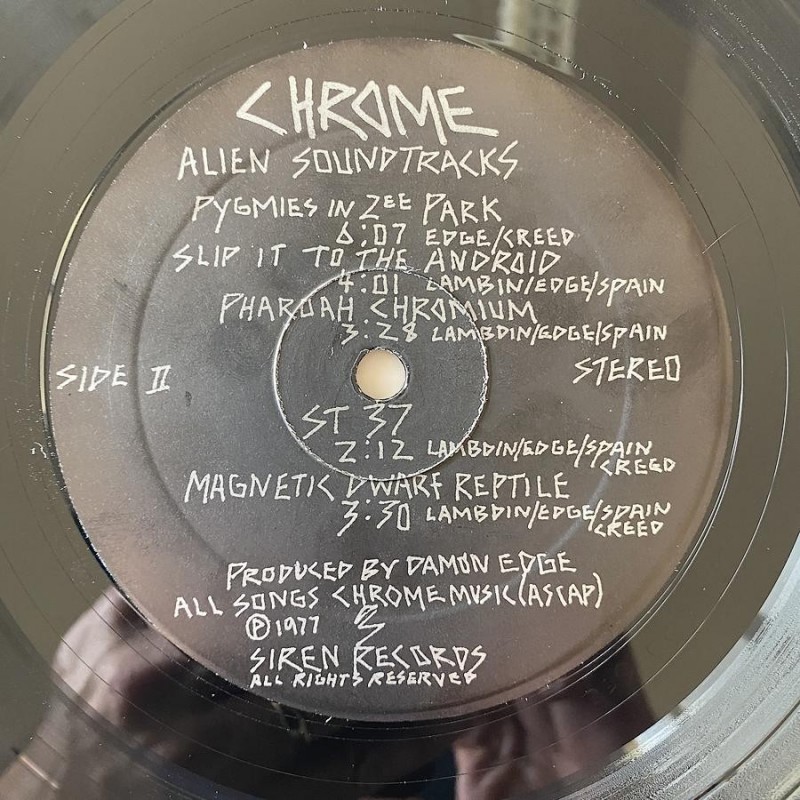 CHROME
ALIEN SOUNDTRACKS
PYGMIES IN ZEE PARK
6:07 EDGE/CREED
SLIP IT TO THE ANDROID
4:01 LAMBIN/EDGE/SPAIN
PHAROAH CHROMIUM
3:28 LAMBDIN/EDGE/SPAIN
SIDE II
STEREO
ST 37
2:12 LAMBDIN/EDGE/SPAIN
CREED
MAGNETIC DWARF REPTILE
3:30 LAMBDIN/EDGE/SPAIN
CREED
PRODUCED BY DAMON EDGE
ALL SONGS CHROME MUSIC (ASCAP)
Ⓟ 1977
SIREN RECORDS
ALL RIGHTS RESERVED